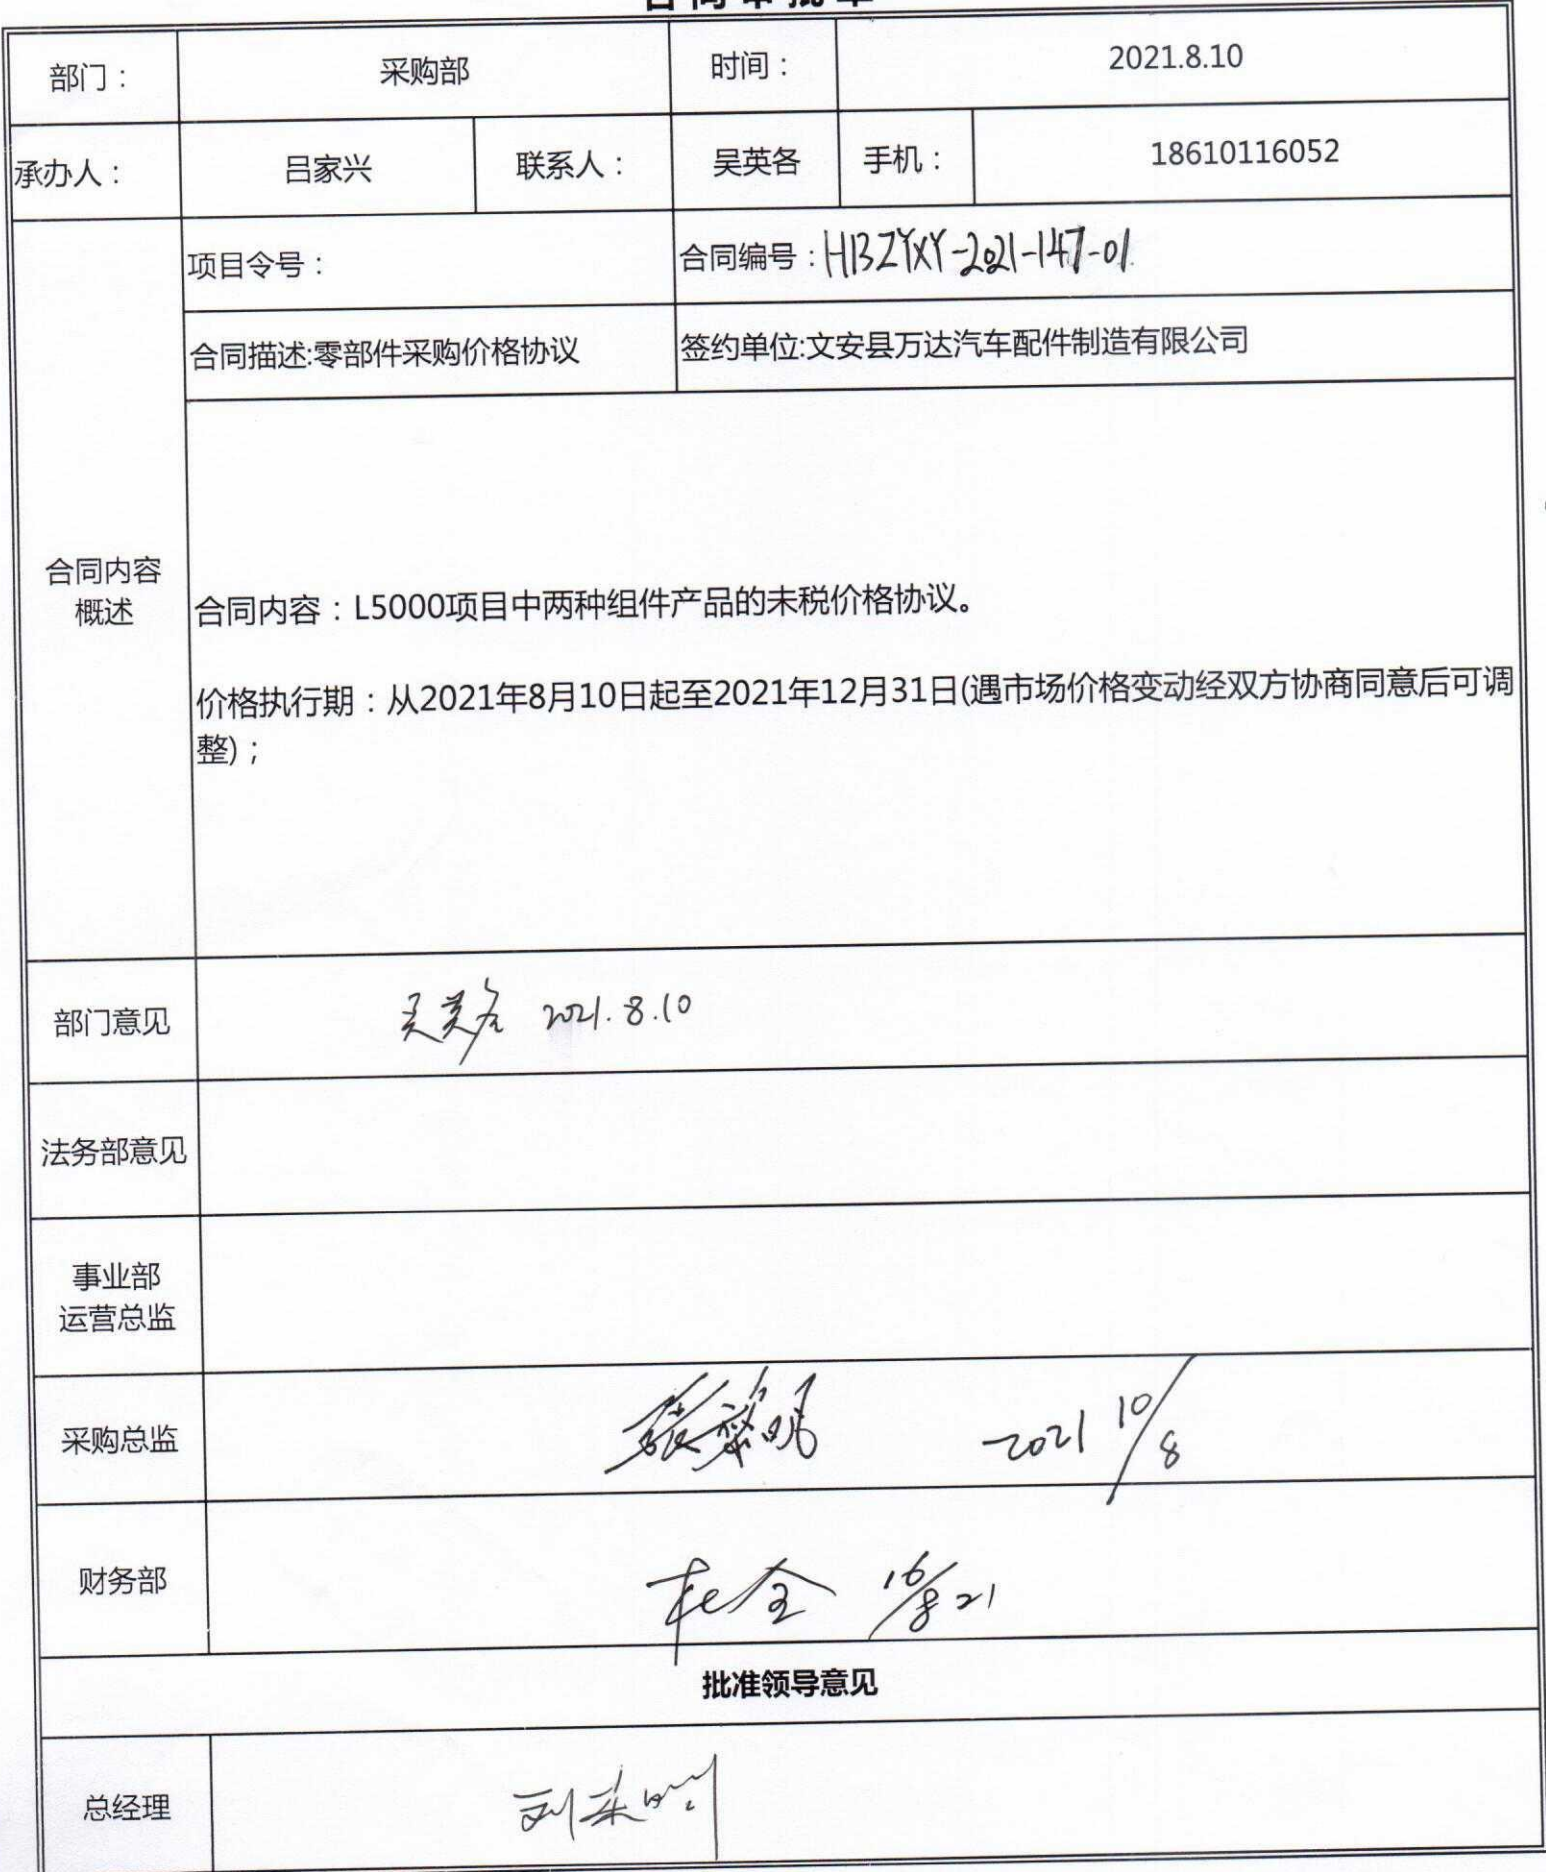 合同审批单
部门： 采购部 时间： 2021.8.10
承办人： 吕家兴 联系人： 吴英各 手机： 18610116052
项目令号： 合同编号：HBZYXY-2021-147-01
合同描述:零部件采购价格协议 签约单位:文安县万达汽车配件制造有限公司
合同内容
概述
合同内容：L5000项目中两种组件产品的未税价格协议。
价格执行期：从2021年8月10日起至2021年12月31日(遇市场价格变动经双方协商同意后可调
整)；
部门意见 吴英各 2021.8.10
法务部意见
事业部
运营总监
采购总监 2021 10/8
财务部 16/8 21
批准领导意见
总经理